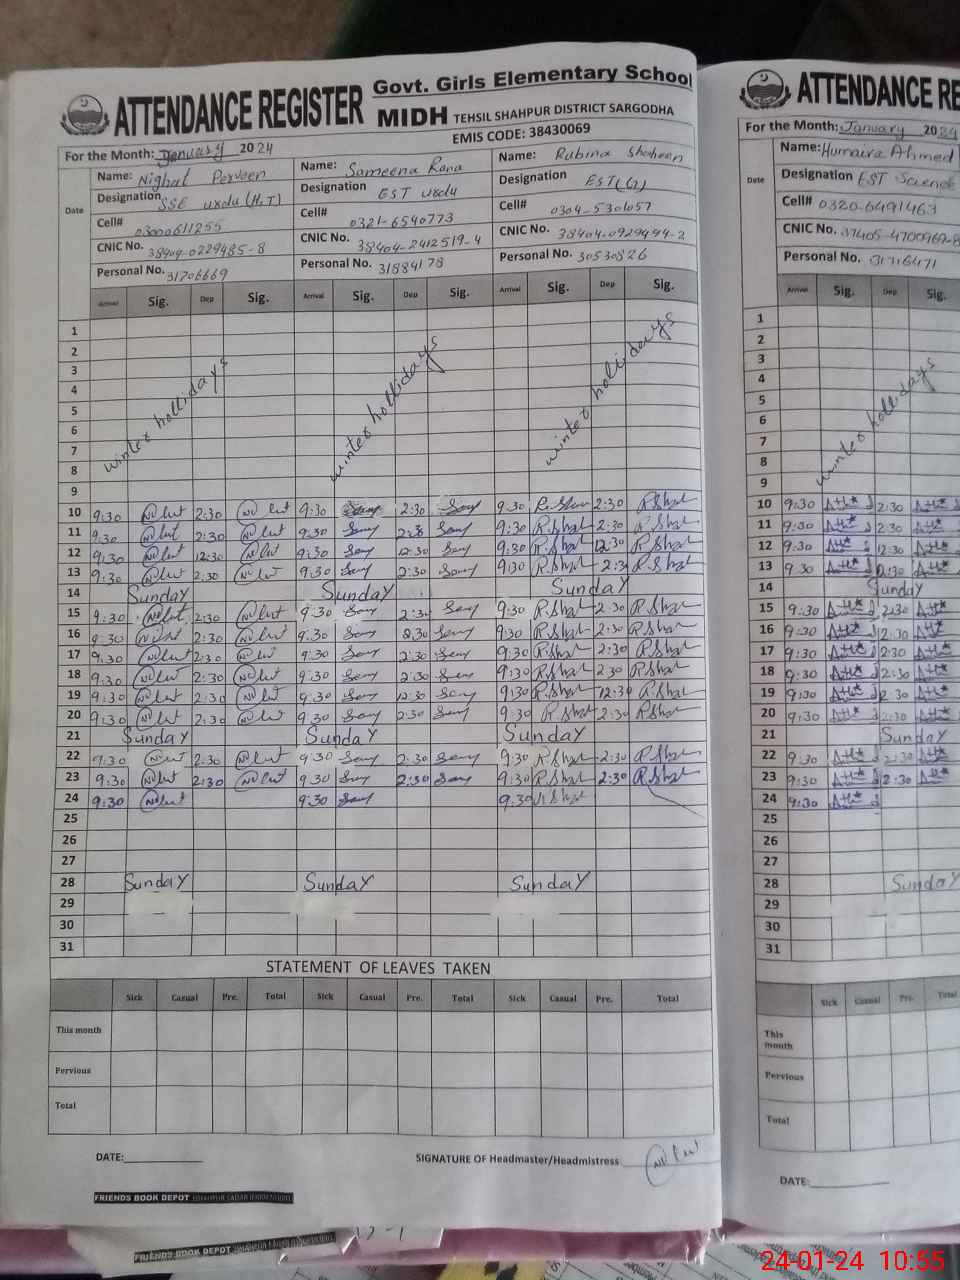 ATTENDANCE REGISTER Govt. Girls Elementary School
MIDH TEHSIL SHAHPUR DISTRICT SARGODHA
EMIS CODE: 38430069
For the Month: January 2024
Date
Name: Nighat Perveen Name: Sameena Rana Name: Rubina Shaheen
Designation SSE urdu (H.T) Designation EST urdu Designation EST (G)
Cell# 03000611255 Cell# 0321-6540773 Cell# 0304-5301057
CNIC No. 38404-0229485-8 CNIC No. 38404-2412519-4 CNIC No. 38404-0929494-2
Personal No. 31706669 Personal No. 31884178 Personal No. 30530826
Arrival Sig. Dep Sig. Arrival Sig. Dep Sig. Arrival Sig. Dep Sig.
1
2
3
4
5
6
7
8
9
winter hollidays winter hollidays winter holidays
10 9:30 2:30 9:30 2:30 9:30 R.Shan 2:30 R.Shal
11 9:30 2:30 9:30 2:30 9:30 R.Shal 2:30 R.Shal
12 9:30 12:30 9:30 12:30 9:30 R.Shal 12:30 R.Shal
13 9:30 2:30 9:30 2:30 9:30 R.Shal 2:30 R.Shal
14 Sunday Sunday Sunday
15 9:30 2:30 9:30 2:30 9:30 R.Shal 2:30 R.Shal
16 9:30 2:30 9:30 2:30 9:30 R.Shal 2:30 R.Shal
17 9:30 2:30 9:30 2:30 9:30 R.Shal 2:30 R.Shal
18 9:30 2:30 9:30 2:30 9:30 R.Shal 2:30 R.Shal
19 9:30 2:30 9:30 12:30 9:30 R.Shal 12:30 R.Shal
20 9:30 2:30 9:30 2:30 9:30 R.Shal 2:30 R.Shal
21 Sunday Sunday Sunday
22 9:30 2:30 9:30 2:30 9:30 R.Shal 2:30 R.Shal
23 9:30 2:30 9:30 2:30 9:30 R.Shal 2:30 R.Shal
24 9:30 9:30 9:30 R.Shal
25
26
27
28 Sunday Sunday Sunday
29
30
31
STATEMENT OF LEAVES TAKEN
Sick Casual Pre. Total Sick Casual Pre. Total Sick Casual Pre. Total
This month
Pervious
Total
DATE: SIGNATURE OF Headmaster/Headmistress
FRIENDS BOOK DEPOT
FRIENDS BOOK DEPOT
ATTENDANCE RE
For the Month: January 2024
Date
Name: Humaira Ahmed
Designation EST Science
Cell# 0320-6491463
CNIC No. 37405-4700967-8
Personal No. 31716471
Arrival Sig. Dep Sig.
1
2
3
4
5
6
7
8
9
winter hollidays
10 9:30 2:30
11 9:30 2:30
12 9:30 12:30
13 9:30 2:30
14 Sunday
15 9:30 2:30
16 9:30 2:30
17 9:30 2:30
18 9:30 2:30
19 9:30 2:30
20 9:30 2:30
21 Sunday
22 9:30 2:30
23 9:30 2:30
24 9:30
25
26
27
28 Sunday
29
30
31
Sick Casual Pre. Total
This month
Pervious
Total
DATE:
24-01-24 10:55